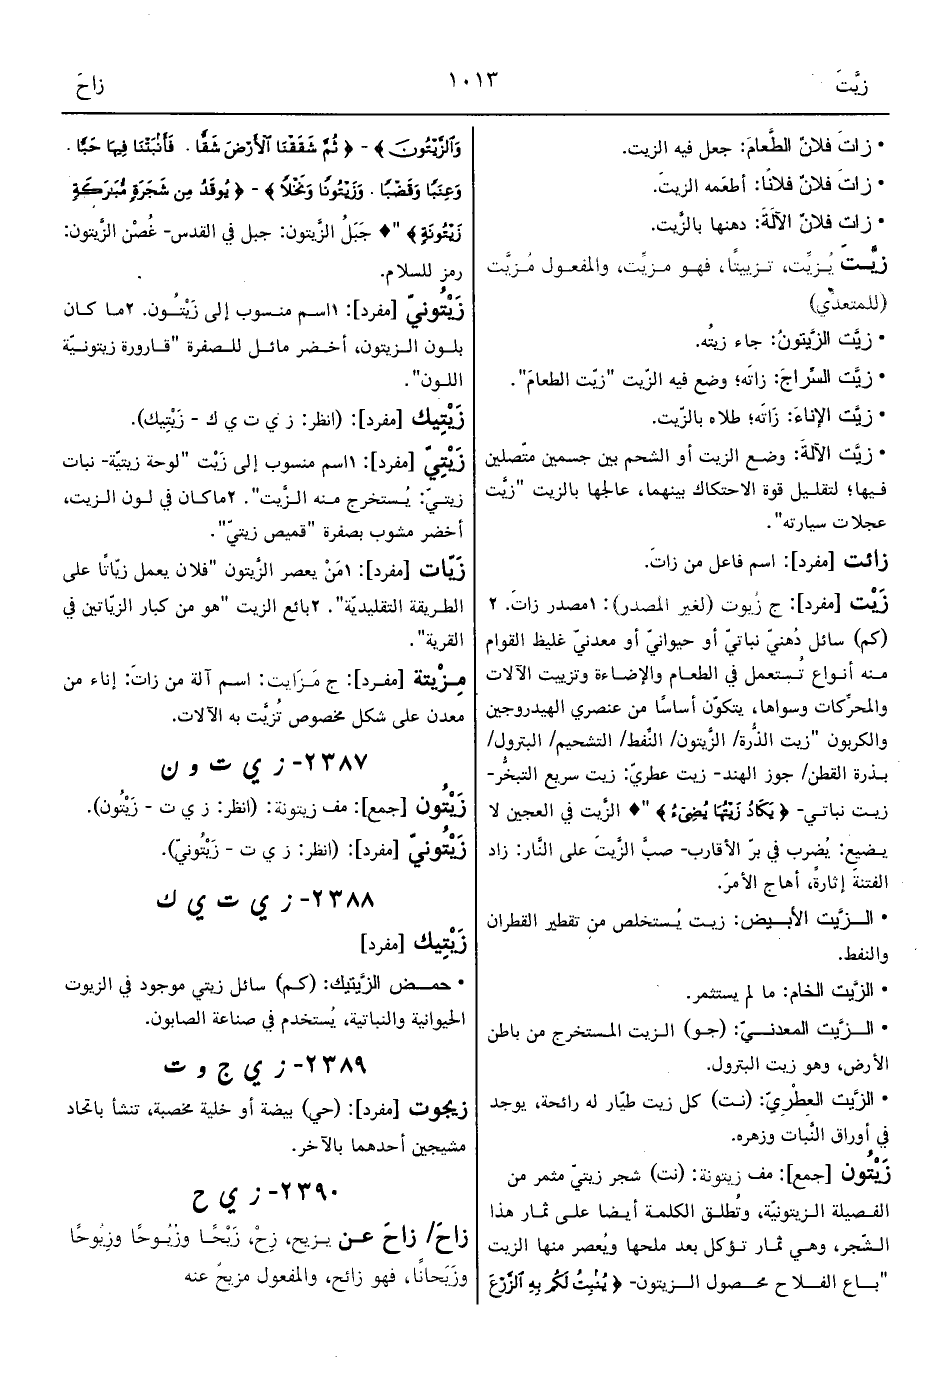 زيَّتَ
١٠١٣
زاحَ
• زاتَ فلانٌ الطَّعامَ: جعل فيه الزيت.
• زاتَ فلانٌ فلانًا: أطعمه الزيتَ.
• زاتَ فلانٌ الآلةَ: دهنها بالزَّيت.
زيَّتَ يُزيِّت، تزييتًا، فهو مزيِّت، والمفعول مُزيَّت
(للمتعدِّي)
• زيَّت الزَّيتونُ: جاء زيتُه.
• زيَّت السِّراجَ: زاتَه؛ وضع فيه الزّيت "زيّت الطعامَ".
• زيَّت الإناءَ: زَاتَه؛ طلاه بالزّيت.
• زيَّت الآلةَ: وضع الزيت أو الشحم بين جسمين متّصلين
فيها؛ لتقليل قوة الاحتكاك بينهما، عالجها بالزيت "زيَّت
عجلات سيارته".
زائت [مفرد]: اسم فاعل من زاتَ.
زَيْت [مفرد]: ج زُيوت (لغير المصدر): ١مصدر زاتَ. ٢
(كم) سائل دُهنيّ نباتيّ أو حيوانيّ أو معدنيّ غليظ القوام
منه أنواع تُستعمل في الطعام والإضاءة وتزييت الآلات
والمحرِّكات وسواها، يتكوّن أساسًا من عنصري الهيدروجين
والكربون "زيت الذُّرة/ الزَّيتون/ النِّفط/ التشحيم/ البترول/
بذرة القطن/ جوز الهند- زيت عطريّ: زيت سريع التبخُّر-
زيت نباتي- ﴿يَكَادُ زَيْتُهَا يُضِيءُ﴾ "♦ الزَّيت في العجين لا
يضيع: يُضرب في برّ الأقارب- صبَّ الزَّيتَ على النَّار: زاد
الفتنةَ إثارةً، أهاج الأمرَ.
• الـزَّيت الأبيض: زيت يُستخلص من تقطير القطران
والنفط.
• الزَّيت الخام: ما لم يستثمر.
• الـزَّيت المعدنـيّ: (جو) الزيت المستخرج من باطن
الأرض، وهو زيت البترول.
• الزَّيت العِطْريّ: (نت) كل زيت طيّار له رائحة، يوجد
في أوراق النَّبات وزهره.
زَيْتُون [جمع]: مف زيتونة: (نت) شجر زيتيّ مثمر من
الفصيلة الزيتونيّة، وتُطلق الكلمة أيضا على ثمار هذا
الشّجر، وهي ثمار تؤكل بعد ملحها ويُعصر منها الزيت
"باع الفلاح محصول الزيتون- ﴿يُنْبِتُ لَكُمْ بِهِ الزَّرْعَ
وَالزَّيْتُونَ﴾ - ﴿ثُمَّ شَقَقْنَا الأَرْضَ شَقًّا . فَأَنْبَتْنَا فِيهَا حَبًّا .
وَعِنَبًا وَقَضْبًا . وَزَيْتُونًا وَنَخْلاً﴾ - ﴿يُوقَدُ مِن شَجَرَةٍ مُبَارَكَةٍ
زَيْتُونَةٍ﴾ "♦ جَبَلُ الزَّيتون: جبل في القدس- غُصْن الزَّيتون:
رمز للسلام.
زَيْتُونيّ [مفرد]: ١اسم منسوب إلى زَيْتُون. ٢ما كان
بلون الزيتون، أخضر مائل للصفرة "قارورة زيتونيّة
اللون".
زَيْتِيك [مفرد]: (انظر: ز ي ت ي ك - زَيْتِيك).
زَيْتِيّ [مفرد]: ١اسم منسوب إلى زَيْت "لوحة زيتيّة- نبات
زيتيّ: يُستخرج منه الزَّيت". ٢ماكان في لون الزيت،
أخضر مشوب بصفرة "قميص زيتيّ".
زَيَّات [مفرد]: ١مَنْ يعصر الزَّيتون "فلان يعمل زيّاتًا على
الطريقة التقليديّة". ٢بائع الزيت "هو من كبار الزيّاتين في
القرية".
مِزْيتة [مفرد]: ج مَزَايت: اسم آلة من زاتَ: إناء من
معدن على شكل مخصوص تُزيَّت به الآلات.
٢٣٨٧- ز ي ت و ن
زَيْتُون [جمع]: مف زيتونة: (انظر: ز ي ت - زَيْتُون).
زَيْتُونيّ [مفرد]: (انظر: ز ي ت - زَيْتُونيّ).
٢٣٨٨- ز ي ت ي ك
زَيْتِيك [مفرد]
• حمض الزَّيتيك: (كم) سائل زيتي موجود في الزيوت
الحيوانية والنباتية، يُستخدم في صناعة الصابون.
٢٣٨٩- ز ي ج و ت
زيجوت [مفرد]: (حي) بيضة أو خلية مخصبة، تنشأ باتحاد
مشيجين أحدهما بالآخر.
٢٣٩٠- ز ي ح
زاحَ/ زاحَ عـن يزيح، زِحْ، زَيْحًا وزُيُوحًا وزِيُوحًا
وزَيَحانًا، فهو زائح، والمفعول مزيحٌ عنه